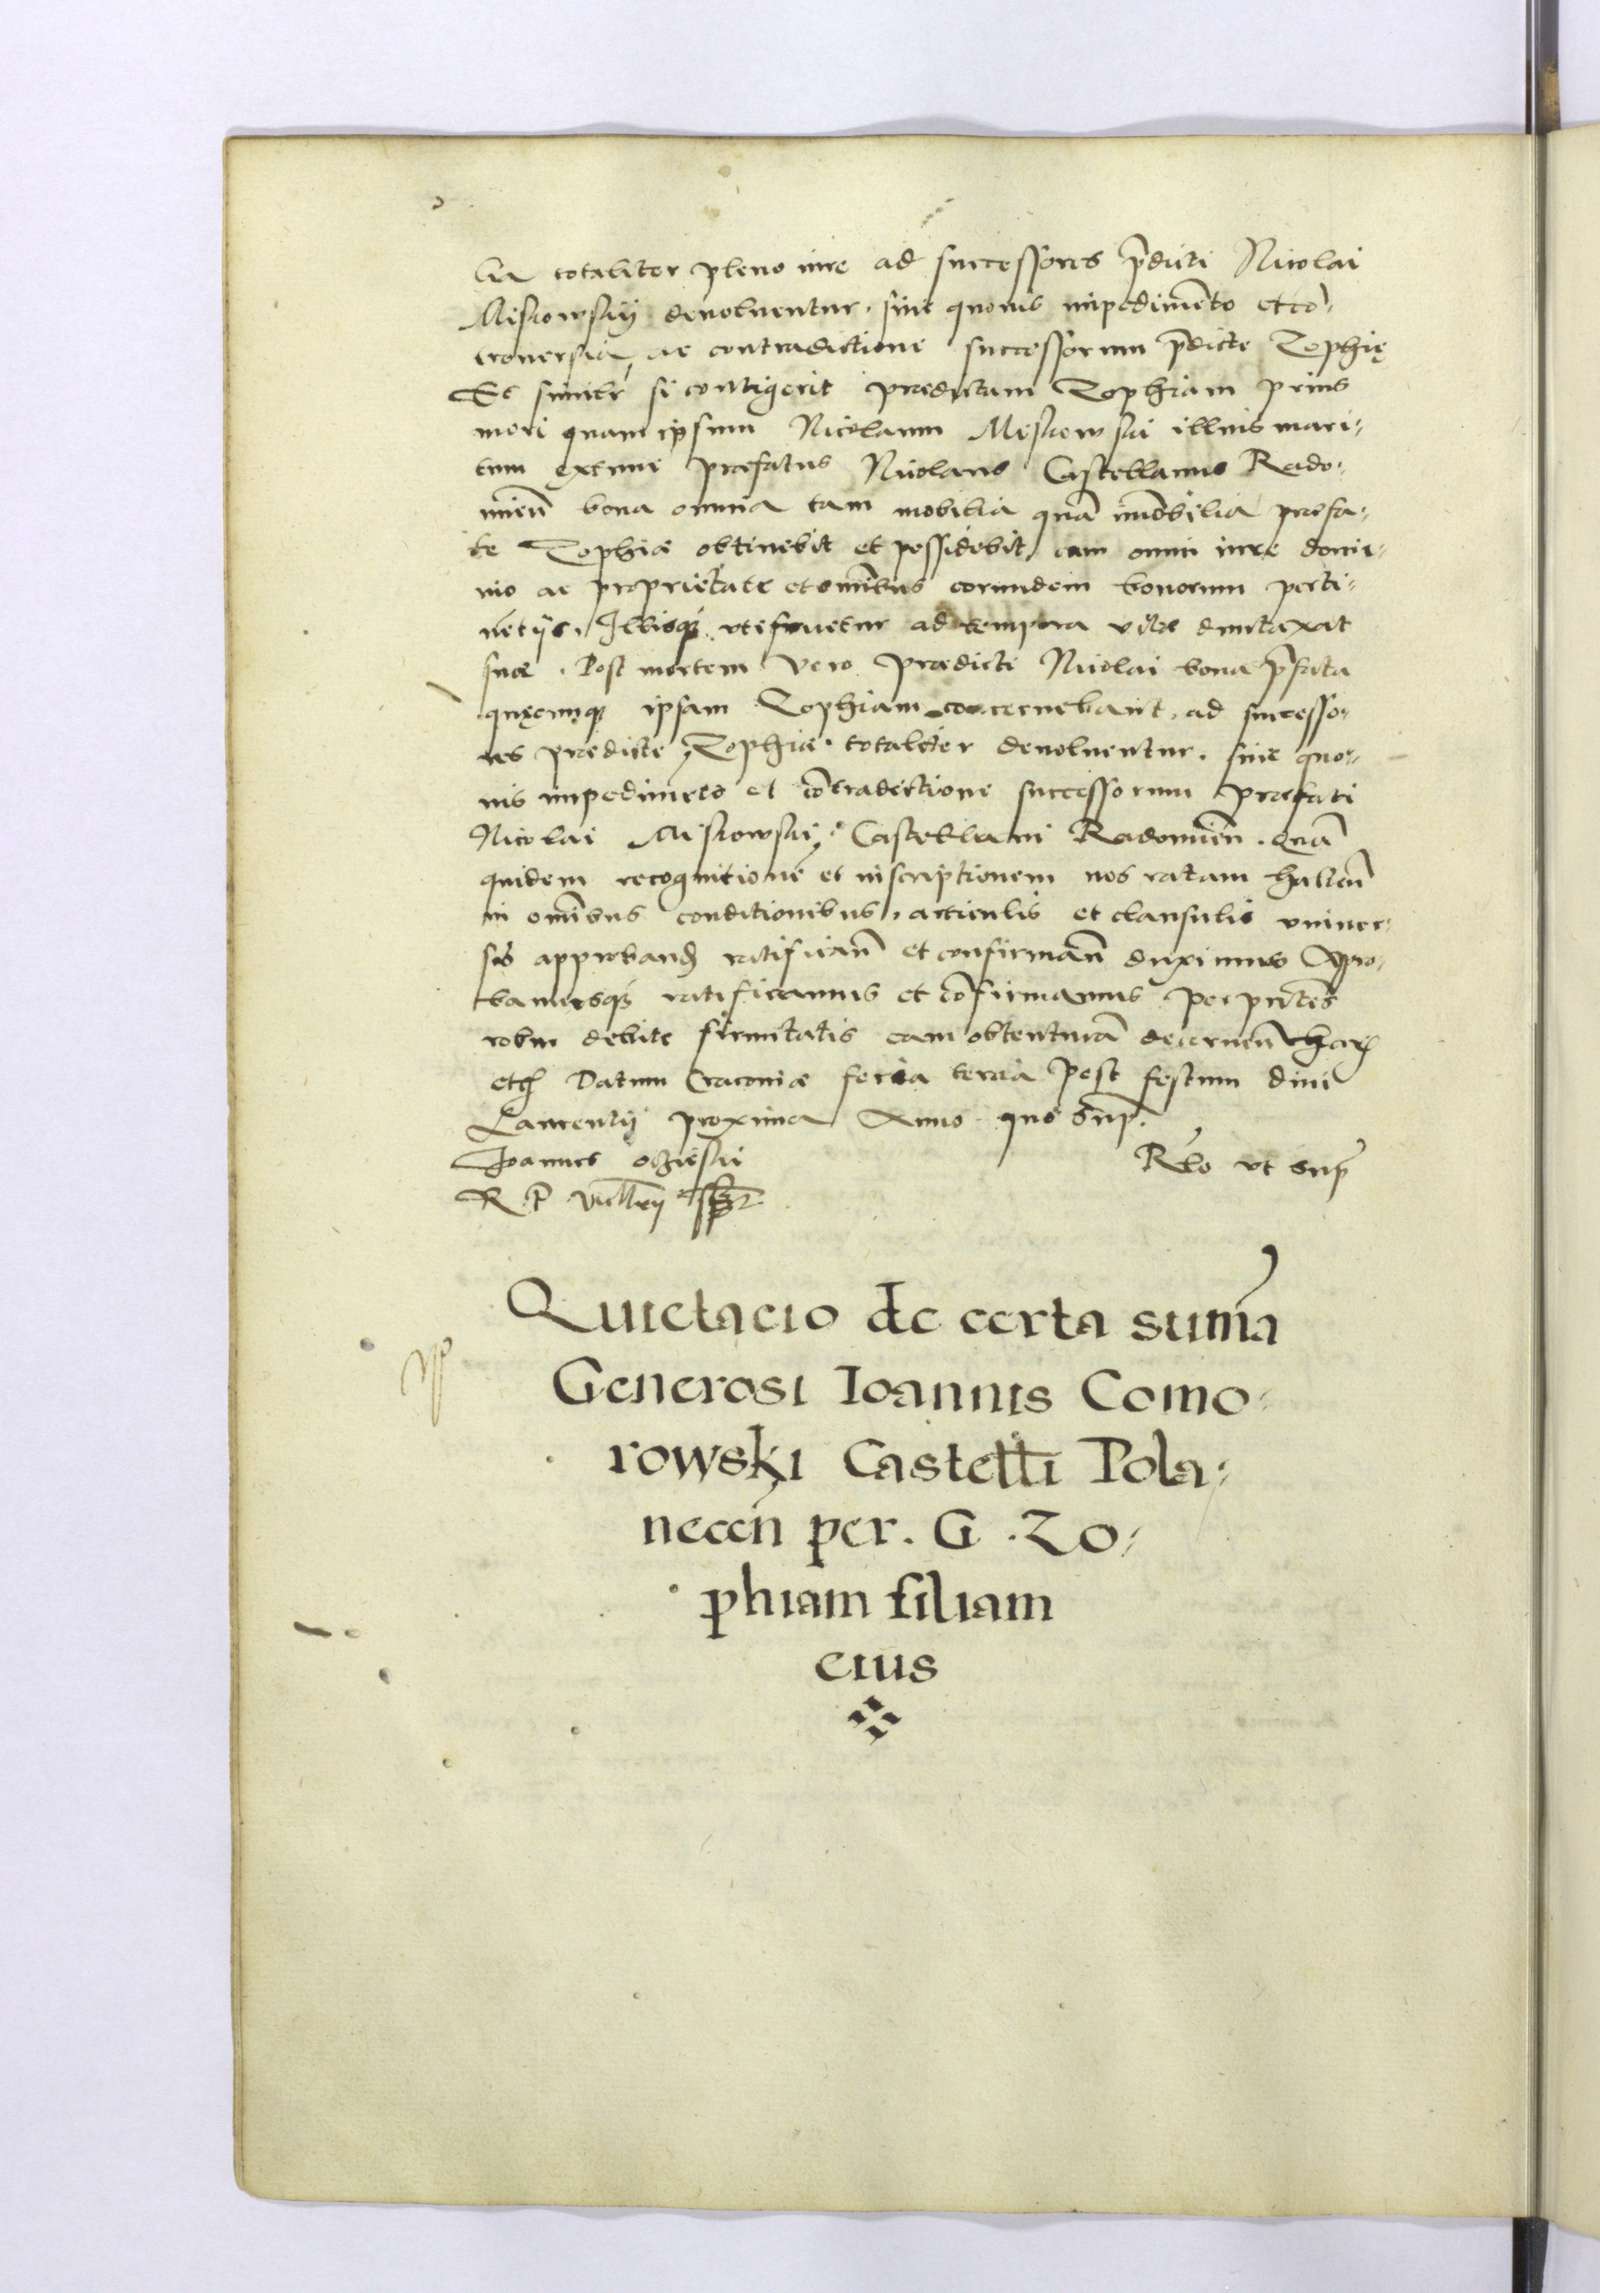 lia totaliter pleno iure ad successores p̄dicti Nicolai
Misiowsky deuoluentur. sine quouis impedimēto et cō-
trouersia, ac contradictione successorum p̄dicte Zophię
Et similr̄ si contigerit praedictam Zophiam prius
mori quam ipsum Nicolaum Misiowski illius mari-
tum extunc praefatus Nicolaus Castellanus Rado-
mieñ bona omnia tam mobilia quā īmobilia praefa-
te Zophiae obtinebit et possidebit, cum omni iure domi-
nio ac proprietate et oībus eorundem bonorum perti-
nētijs. Illisq3 vtifruetur ad tempora vitae duntaxat
suae. Post mortem vero praedicti Nicolai bona p̄fata
quęcunq3 ipsam Zophiam concernebant, ad successo-
res praedicte Zophiae totaliter deuoluentur. sine quo-
uis impedimēto et cōtradictione successorum praefati
Nicolai Misiowski, Castellani Radomieñ. Quā
quidem recognitionē et inscriptionem nos ratam habeñ
in oībus conditionibus, articulis et clausulis vniuer-
sis approband ratificañ et confirmañ duximus Appro-
bamusq3 ratificamus et cōfirmamus per pn̄tes
robur debite firmitatis eam obtenturā decerneñ har
etc Datum Cracouiae feria tercia Post festum diui
Laurentij proxima Anno quo sup.
Ioannes ochieski
Rēlo vt sup
R. P. vicecancellarius
Quietacio de certa sum̄a
Generosi Ioannis Como-
rowski Castelli Pola-
neceñ per. G. Zo-
phiam filiam
eius